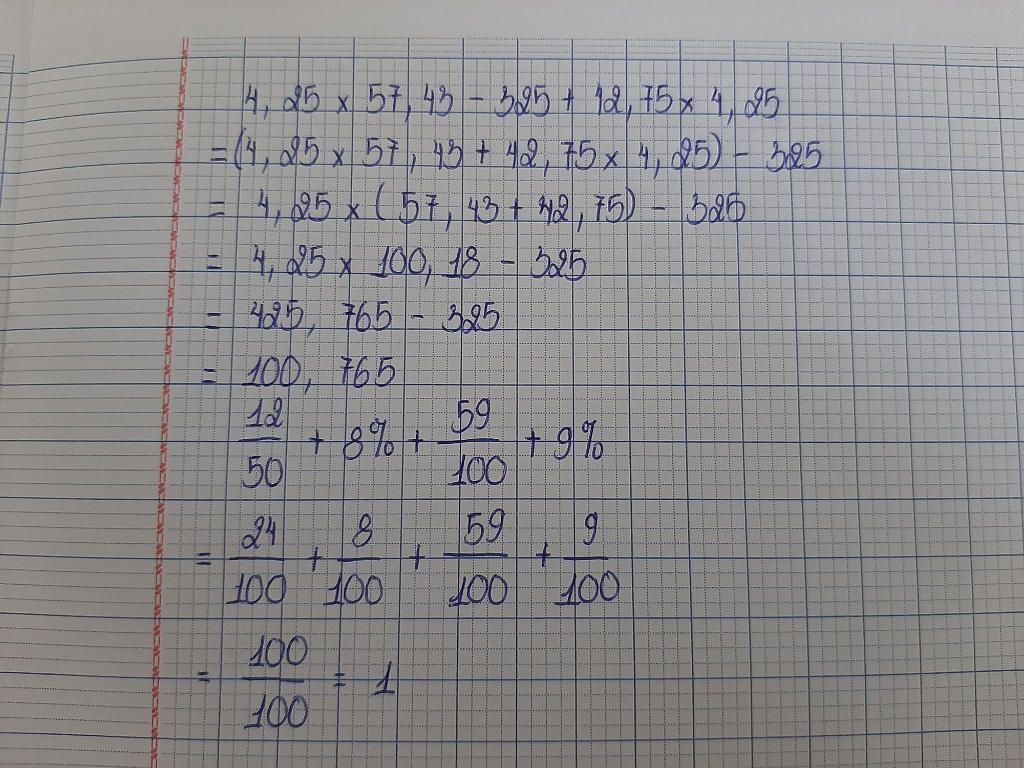 4,25 × 57,43 - 325 + 42,75 × 4,25
= (4,25 × 57,43 + 42,75 × 4,25) - 325
= 4,25 × (57,43 + 42,75) - 325
= 4,25 × 100,18 - 325
= 425,765 - 325
= 100,765
12/50 + 8% + 59/100 + 9%
= 24/100 + 8/100 + 59/100 + 9/100
= 100/100 = 1